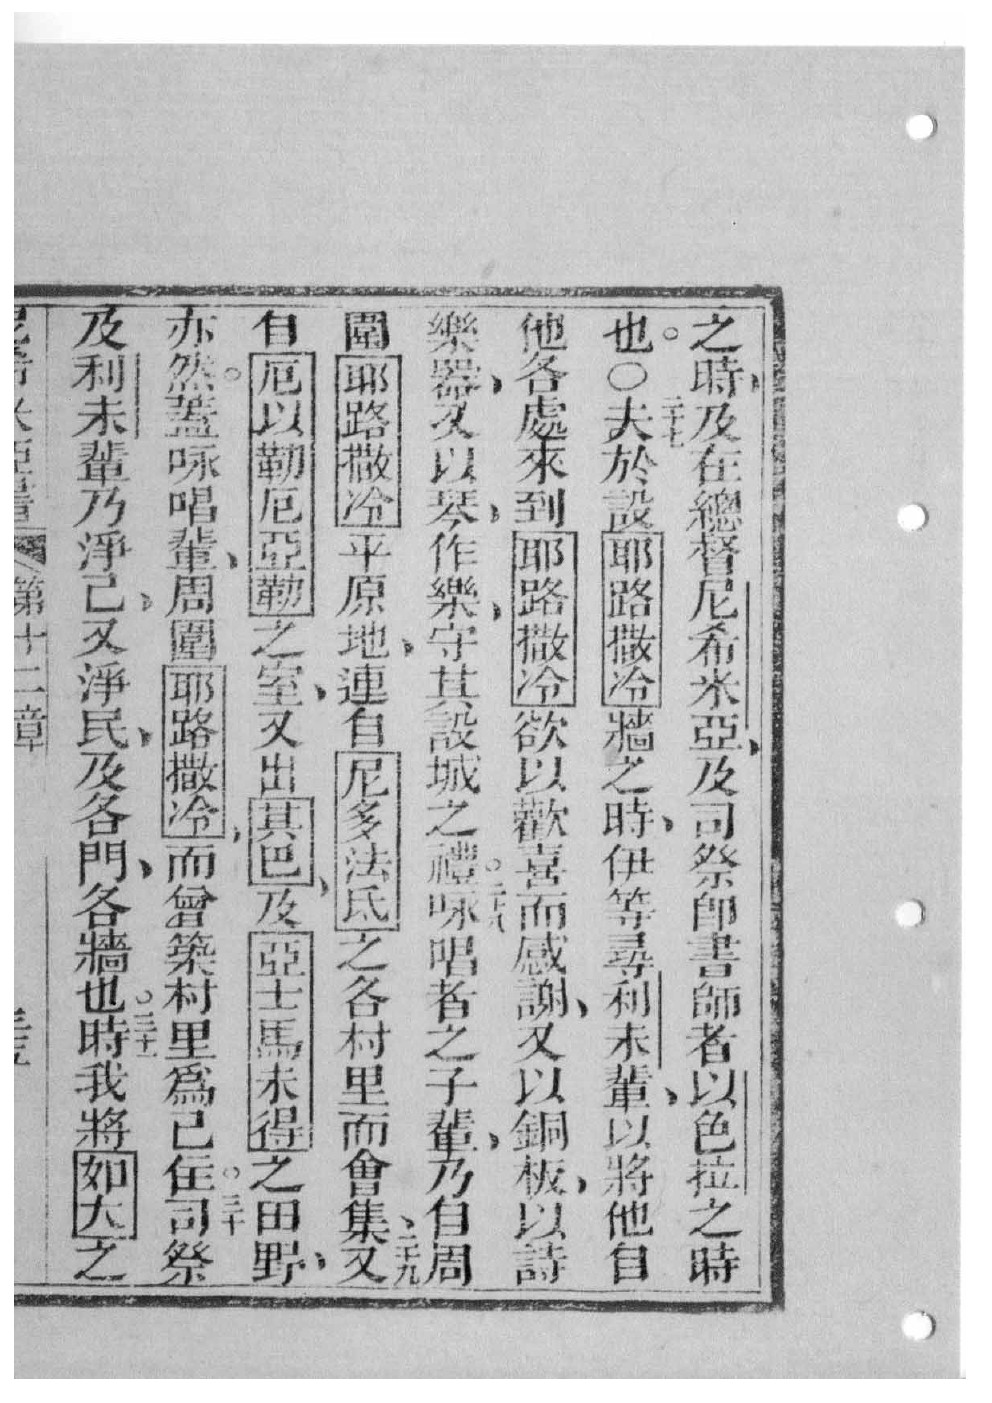 之時、及在總督尼希米亞、及司祭卽書師者以色拉之時
也。〇二十七夫於設耶路撒冷牆之時、伊等尋利未輩、以將他自
他各處來到耶路撒冷欲以歡喜而感謝、又以銅板、以詩
樂器、又以琴、作樂、守其設城之禮。二十八咏唱者之子輩、乃自周
圍耶路撒冷平原地、連自尼多法氐之各村里而會集、二十九又
自厄以勒厄亞勒之室、又出其巴、及亞士馬未得之田野、
亦然。蓋咏唱輩、周圍耶路撒冷、而曾築村里爲己住。三十司祭
及利未輩乃淨己、又淨民、及各門、各牆也。三十一時我將如大之
尼希米亞書 第十二章